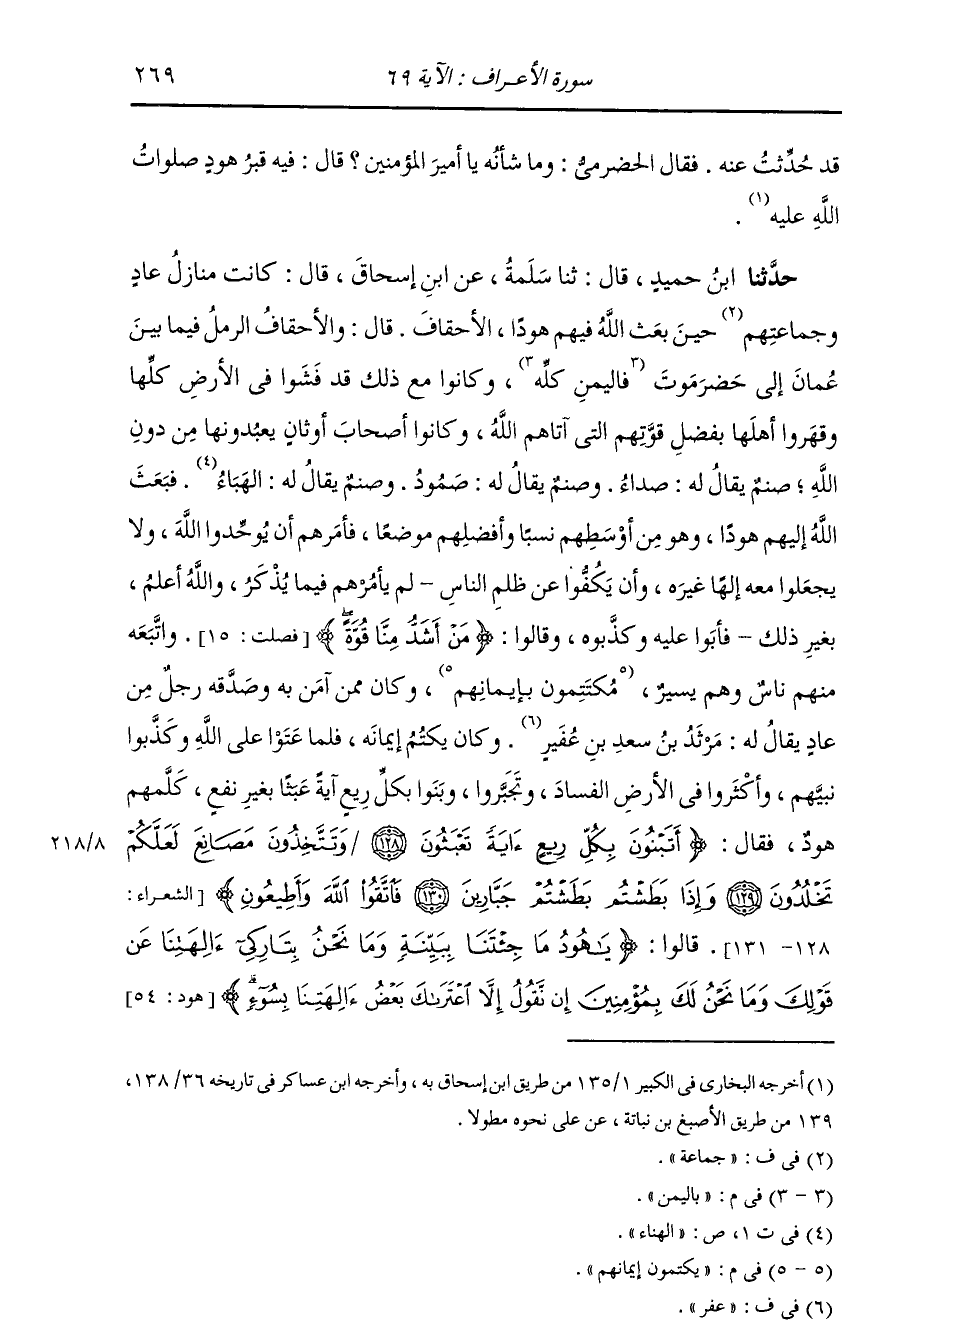 سورة الأعراف : الآية ٦٩ ٢٦٩
قد حُدِّثتُ عنه . فقال الحضرمىُّ : وما شأنُه يا أميرَ المؤمنين ؟ قال : فيه قبرُ هودٍ صلواتُ
اللَّهِ عليه(١) .
حدَّثنا ابنُ حميدٍ ، قال : ثنا سَلَمةُ ، عن ابنِ إسحاقَ ، قال : كانت منازلُ عادٍ
وجماعتِهم(٢) حينَ بعَث اللَّهُ فيهم هودًا ، الأحقافَ . قال : والأحقافُ الرملُ فيما بينَ
عُمانَ إلى حَضرَمَوتَ (٣ فاليمنِ كلِّه ٣) ، وكانوا مع ذلك قد فَشَوا فى الأرضِ كلِّها
وقهَروا أهلَها بفضلِ قوَّتِهم التى آتاهم اللَّهُ ، وكانوا أصحابَ أوثانٍ يعبُدونها مِن دونِ
اللَّهِ ؛ صنمٌ يقالُ له : صداءُ . وصنمٌ يقالُ له : صَمُودُ . وصنمٌ يقالُ له : الهَبَاءُ(٤) . فبَعَثَ
اللَّهُ إليهم هودًا ، وهو مِن أوْسَطِهم نسبًا وأفضلِهم موضعًا ، فأمَرهم أن يُوحِّدوا اللَّهَ ، ولا
يجعَلوا معه إلهًا غيرَه ، وأن يَكُفُّوا عن ظلمِ الناسِ – لم يأمُرْهم فيما يُذْكَرُ ، واللَّهُ أعلمُ ،
بغيرِ ذلك – فأبَوا عليه وكذَّبوه ، وقالوا : ﴿ مَنْ أَشَدُّ مِنَّا قُوَّةً ﴾ [ فصلت : ١٥ ] . واتَّبَعَه
منهم ناسٌ وهم يسيرٌ ، (٥ مُكتَتِمون بإيمانِهم ٥) ، وكان ممن آمَن به وصَدَّقه رجلٌ مِن
عادٍ يقالُ له : مَرْثَدُ بنُ سعدِ بنِ عُفَيرٍ(٦) . وكان يكتُمُ إيمانَه ، فلما عَتَوْا على اللَّهِ وكذَّبوا
نبيَّهم ، وأكْثَروا فى الأرضِ الفسادَ ، وتَجَبَّروا ، وبَنَوا بكلِّ رِيعٍ آيةً عَبَثًا بغيرِ نفعٍ ، كَلَّمهم
هودٌ ، فقال : ﴿ أَتَبْنُونَ بِكُلِّ رِيعٍ ءَايَةً تَعْبَثُونَ ١٢٨ / وَتَتَّخِذُونَ مَصَانِعَ لَعَلَّكُمْ ٢١٨/٨
تَخْلُدُونَ ١٢٩ وَإِذَا بَطَشْتُم بَطَشْتُمْ جَبَّارِينَ ١٣٠ فَاتَّقُوا اللَّهَ وَأَطِيعُونِ ﴾ [ الشعراء :
١٢٨ – ١٣١ ] . قالوا : ﴿ يَاهُودُ مَا جِئْتَنَا بِبَيِّنَةٍ وَمَا نَحْنُ بِتَارِكِي ءَالِهَتِنَا عَن
قَوْلِكَ وَمَا نَحْنُ لَكَ بِمُؤْمِنِينَ إِن نَّقُولُ إِلَّا اعْتَرَاكَ بَعْضُ ءَالِهَتِنَا بِسُوءٍ ﴾ [ هود : ٥٤ ]
(١) أخرجه البخارى فى الكبير ١٣٥/١ من طريق ابن إسحاق به ، وأخرجه ابن عساكر فى تاريخه ١٣٨/٣٦،
١٣٩ من طريق الأصبغ بن نباتة ، عن على نحوه مطولا .
(٢) فى ف : « جماعة » .
(٣ – ٣) فى م : « باليمن » .
(٤) فى ت ١، ص : « الهناء » .
(٥ – ٥) فى م : « يكتمون إيمانهم » .
(٦) فى ف : « عفر » .